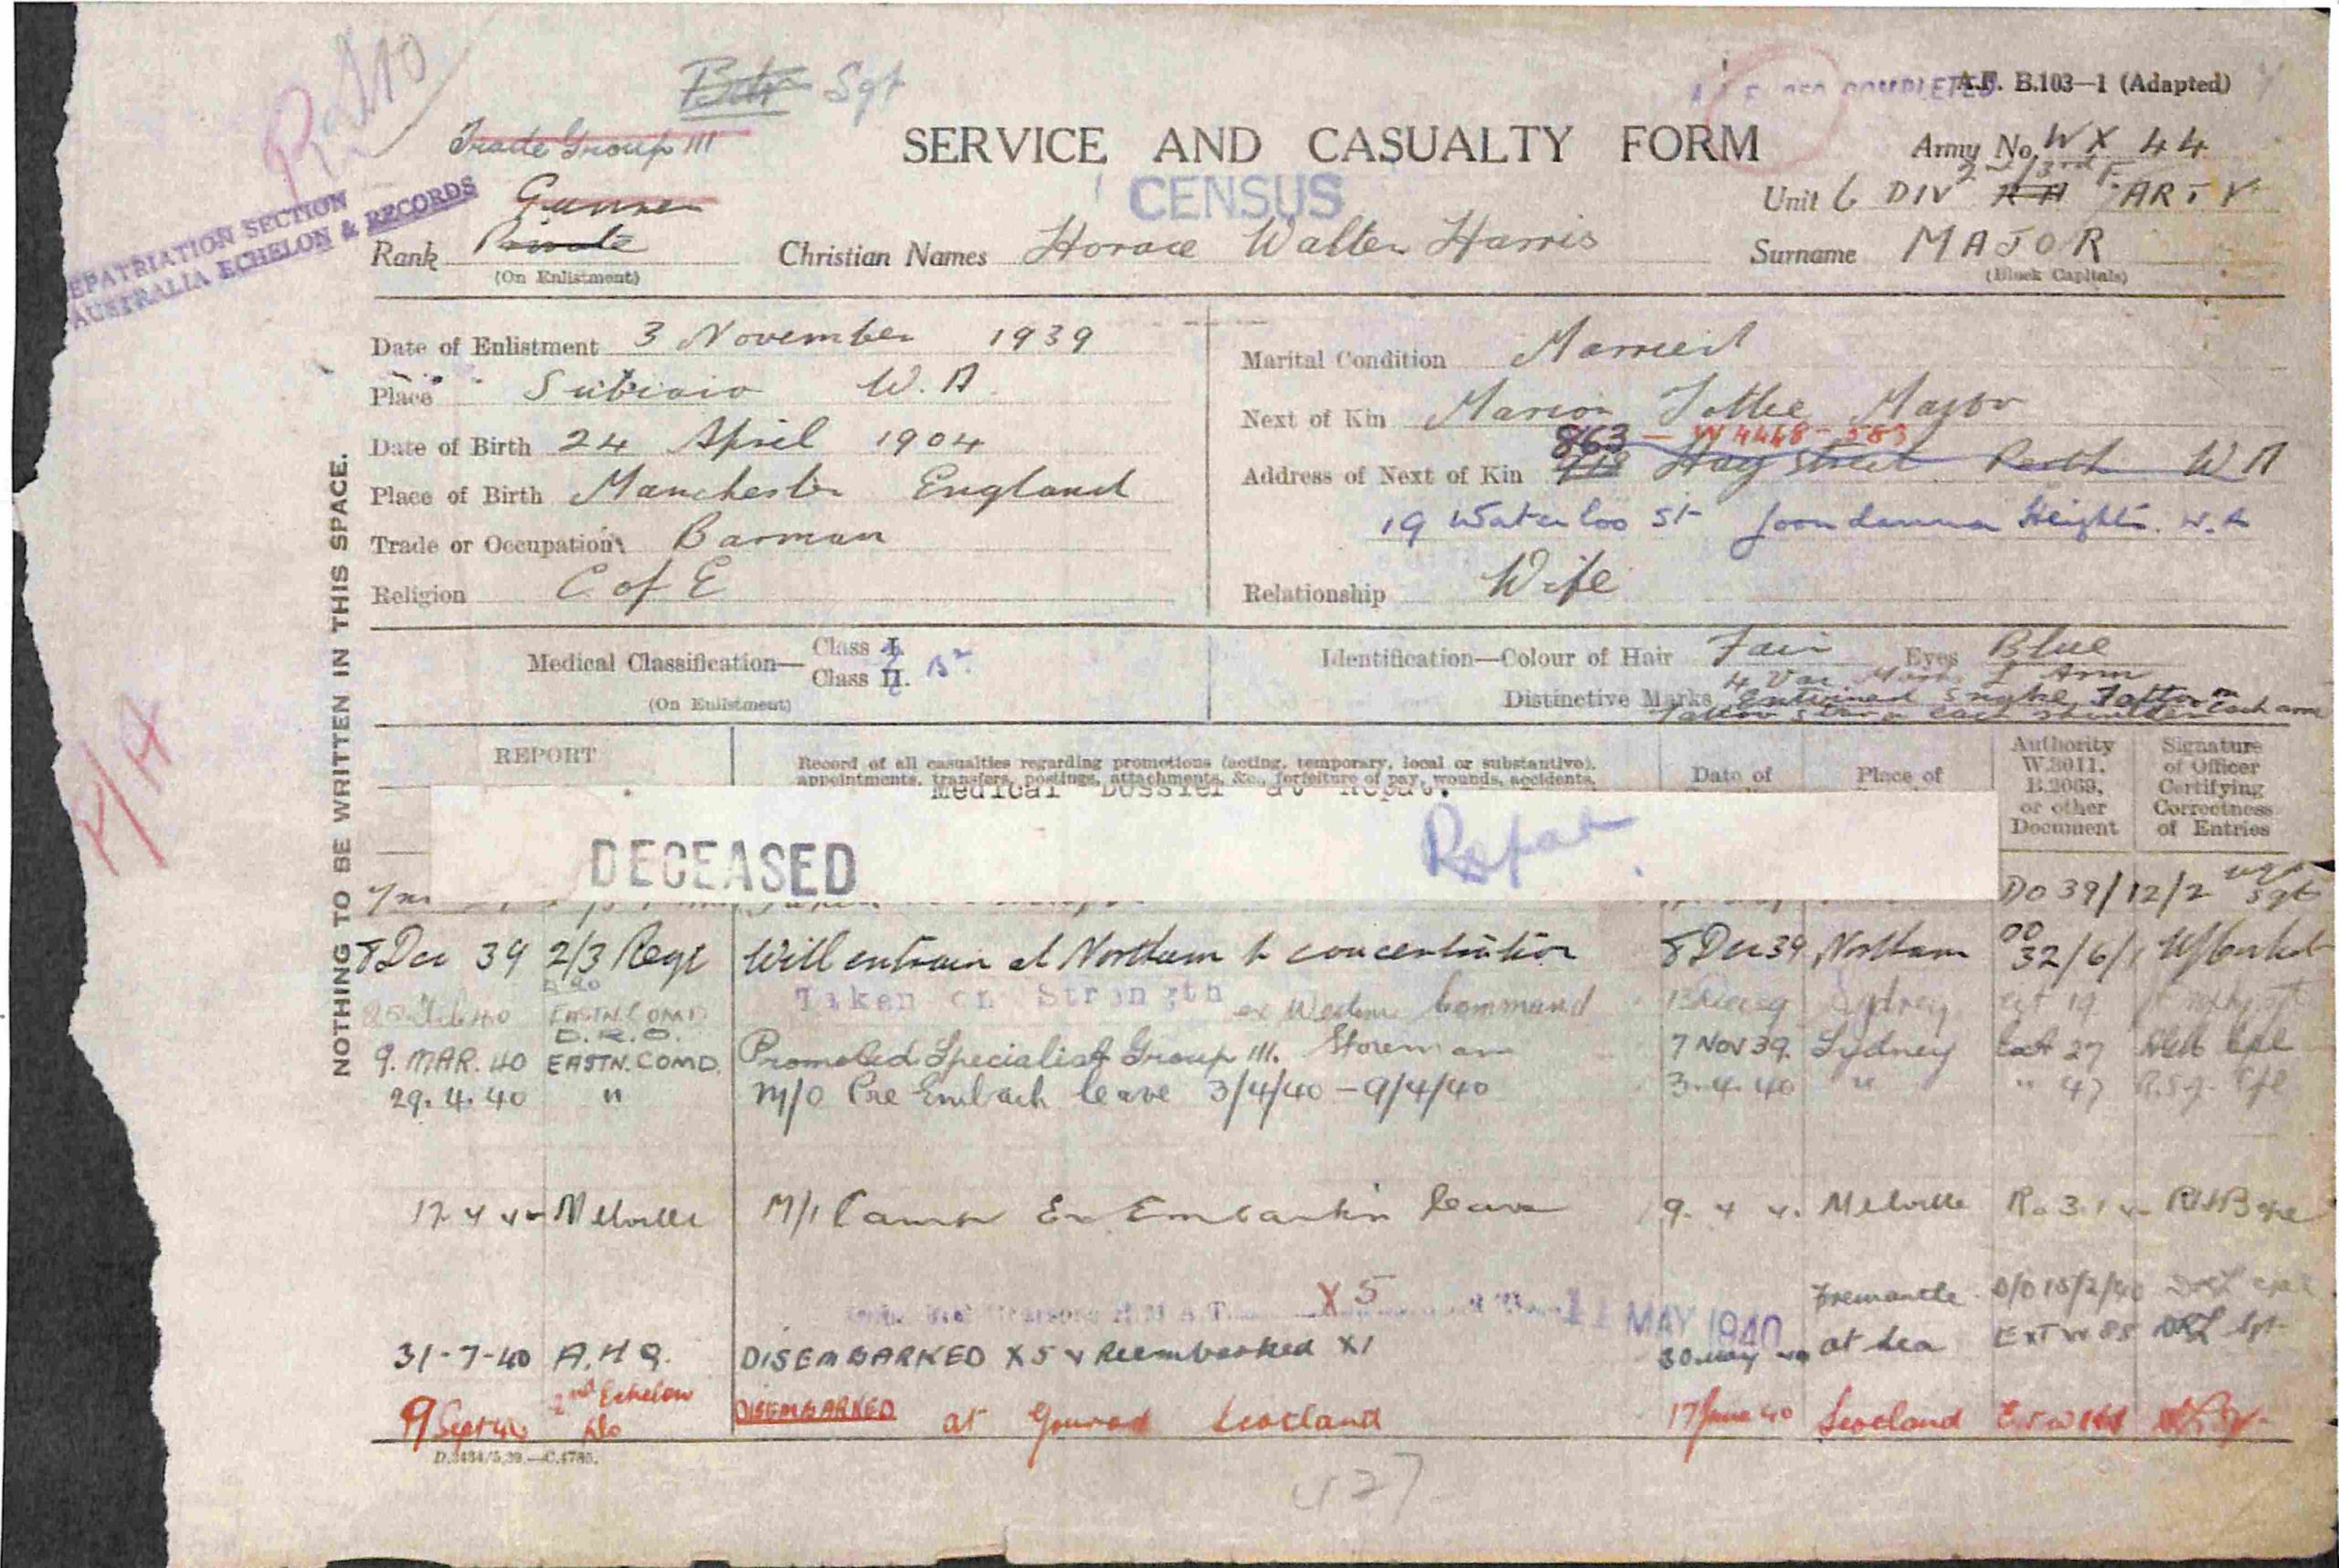 Sgt
A.F. B.103—1 (Adapted)
Trade Group III
SERVICE AND CASUALTY FORM
Army No. WX 44
CENSUS
REPATRIATION SECTION
AUSTRALIA ECHELON & RECORDS
Gunner
2nd/3rd F.
Unit 6 DIV RA ARTY
Rank Private
(On Enlistment)
Christian Names Horace Walter Harris
Surname MAJOR
(Block Capitals)
NOTHING TO BE WRITTEN IN THIS SPACE.
Date of Enlistment 3 November 1939
Place " Subiaco W.A.
Date of Birth 24 April 1904
Place of Birth Manchester England
Trade or Occupation Barman
Religion C of E
Marital Condition Married
Next of Kin Marion Major
863 — W4468-583
Address of Next of Kin Hay Street Perth WA
19 Waterloo St Joondanna Heights. W.A
Relationship Wife
Medical Classification— Class I.
Class II. B2
(On Enlistment)
Identification—Colour of Hair Fair Eyes Blue
4 Vac Marks L Arm
Distinctive Marks Entwined Snake Tattoo on each arm
Tattoo Star on each shoulder
REPORT
Record of all casualties regarding promotions (acting, temporary, local or substantive),
appointments, transfers, postings, attachments, &c., forfeiture of pay, wounds, accidents,
Date of
Place of
Authority W.3011, B.2069, or other Document
Signature of Officer Certifying Correctness of Entries
Medical Dossier at Repat.
DECEASED Repat
DO 39/12/2 Sgt
8 Dec 39 2/3 Regt Will entrain at Northam to concentration 8 Dec 39 Northam DO 32/6/1
EASTN.COMD Taken on Strength ex Western Command Sydney
D.R.O.
9. MAR. 40 EASTN.COMD. Promoted Specialist Group III. Storeman 7 NOV 39. Sydney 27 Cpl
29. 4. 40 " M/O Pre Embark leave 3/4/40 – 9/4/40 3. 4. 40 " " 47 Cpl
Melville M/I Camp Ex Embarkn leave 9. 4 Melville
X5 11 MAY 1940 Fremantle D/O 15/2/40
31-7-40 A.H.Q. DISEMBARKED X5 & Reembarked X1 30 May 40 at sea
9 Sept 40 2nd Echelon DISEMBARKED at Gourock Scotland 17 June 40 Scotland
D.3434/5.39.—C.4785.